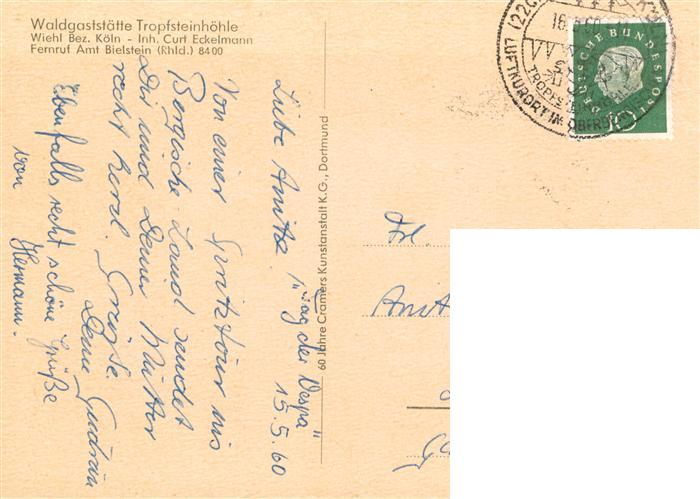 Waldgaststätte Tropfsteinhöhle
Wiehl Bez. Köln - Inh. Curt Eckelmann
Fernruf Amt Bielstein (Rhld.) 8400
"Tag der Vespa"
15.5.60
Liebe Anita
Von einer Spritztour ins
Bergische Land sendet
Dir und Deiner Mutter
recht herzl. Grüße.
Deine Gudrun
Ebenfalls recht schöne Grüße
von
Hermann.
60 Jahre Cramers Kunstanstalt K.G., Dortmund
Frl.
DEUTSCHE BUNDESPOST
10
(22c)
16.5.60
TROPFSTEINHÖHLE
LUFTKURORT IM OBERBERG